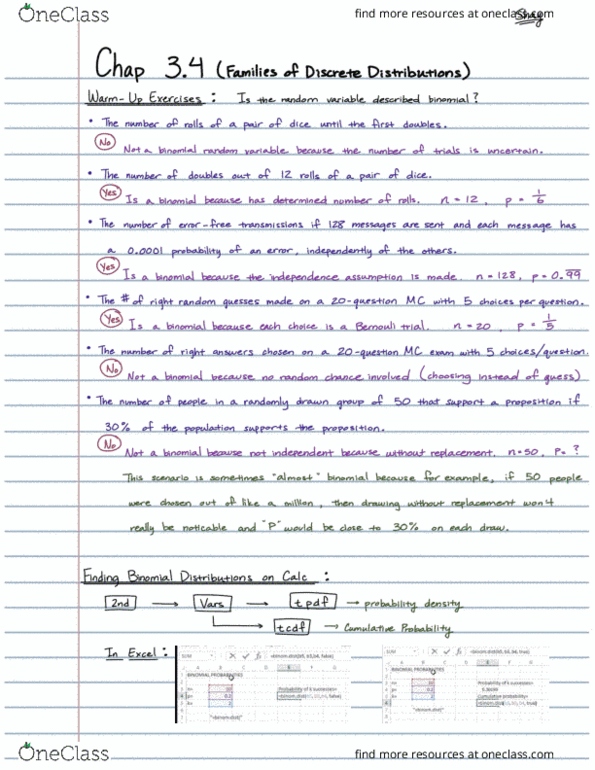 OneClass
find more resources at oneclass.com
Chap 3.4 (Families of Discrete Distributions)
Warm-Up Exercises : Is the random variable described binomial?
• The number of rolls of a pair of dice until the first doubles.
No Not a binomial random variable because the number of trials is uncertain.
• The number of doubles out of 12 rolls of a pair of dice.
Yes Is a binomial because has determined number of rolls. n = 12, p = 1/6
• The number of error-free transmissions if 128 messages are sent and each message has
a 0.0001 probability of an error, independently of the others.
Yes Is a binomial because the independence assumption is made. n = 128, p = 0.99
• The # of right random guesses made on a 20-question MC with 5 choices per question.
Yes Is a binomial because each choice is a Bernouli trial. n = 20, p = 1/5
• The number of right answers chosen on a 20-question MC exam with 5 choices/question.
No Not a binomial because no random chance involved (choosing instead of guess)
• The number of people in a randomly drawn group of 50 that support a proposition if
30% of the population supports the proposition.
No Not a binomial because not independent because without replacement. n = 50, P = ?
This scenario is sometimes "almost" binomial because for example, if 50 people
were chosen out of like a million, then drawing without replacement won't
really be noticable and "P" would be close to 30% on each draw.
Finding Binomial Distributions on Calc :
2nd → Vars → tpdf → probability density
tcdf → Cumulative Probability
In Excel :
BINOMIAL PROBABILITIES
Probability of k successes=
"=binom.dist("
BINOMIAL PROBABILITIES
Probability of k successes=
Cumulative probability=
"=binom.dist("
OneClass
find more resources at oneclass.com